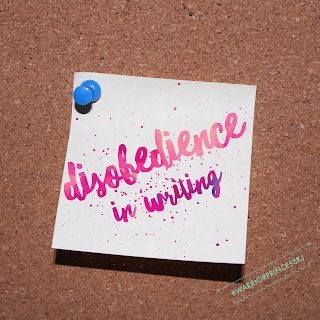 disobedience
in writing
#WARRIORPRINCESSKJ